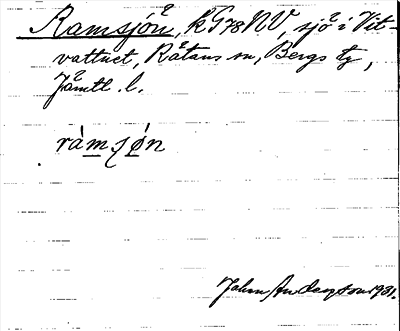 Ramsjön, kG78NV, sjö i Vit-
vattnet, Rätans sn, Bergs tg,
Jämtl. l.
ràmʃøn
Johan Anderson 1931.